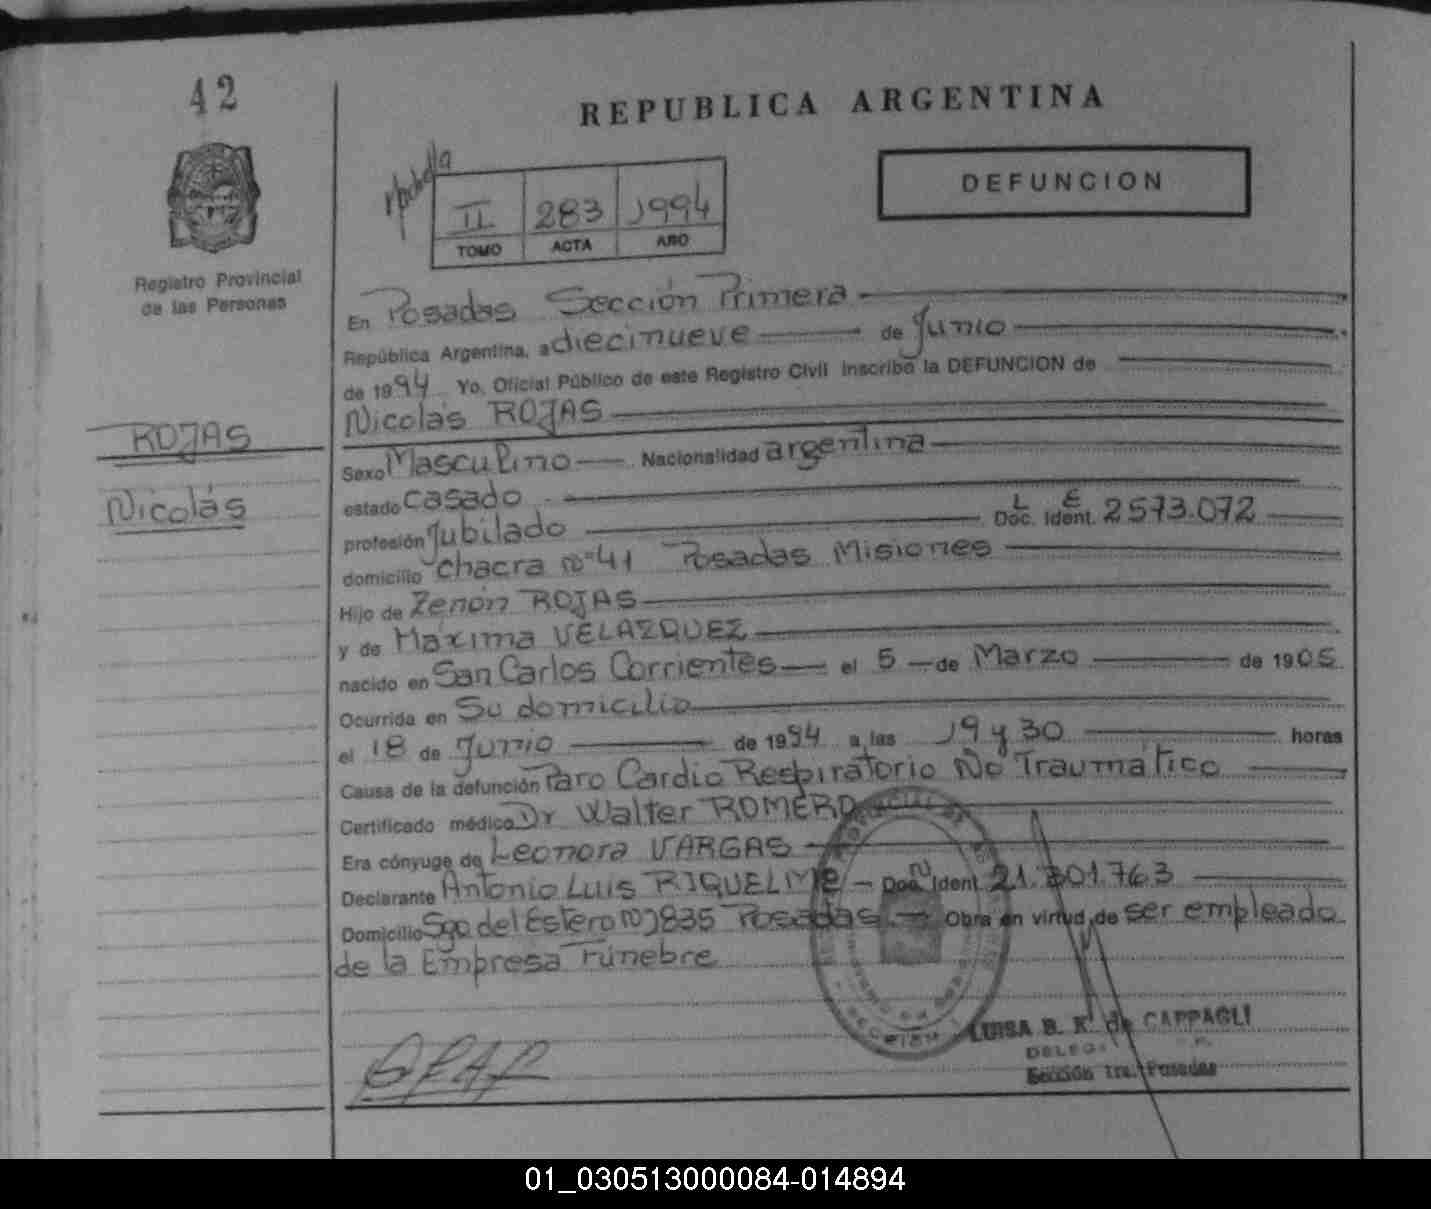 42
REPUBLICA ARGENTINA
DEFUNCION
II 283 1994
TOMO ACTA AÑO
Registro Provincial
de las Personas
ROJAS
Nicolás
En Posadas Sección Primera
República Argentina, a diecinueve de Junio
de 1994 Yo, Oficial Público de este Registro Civil inscribo la DEFUNCION de
Nicolás ROJAS
Sexo Masculino Nacionalidad argentina
estado casado
L E
profesión Jubilado Doc. Ident. 2573.072
domicilio Chacra nº 41 Posadas Misiones
Hijo de Zenón ROJAS
y de Máxima VELAZQUEZ
nacido en San Carlos Corrientes el 5 de Marzo de 1905
Ocurrida en Su domicilio
el 18 de Junio de 1994 a las 19 y 30 horas
Causa de la defunción Paro Cardio Respiratorio No Traumático
Certificado médico Dr Walter ROMERO
Era cónyuge de Leonora VARGAS
Declarante Antonio Luis RIQUELME Doc. Ident. 21.301.763
Domicilio Sgo del Estero nº 835 Posadas Obra en virtud de ser empleado
de la Empresa Fúnebre
LUISA B. K. de CAPPAGLI
Sección 1ra. Posadas
01_030513000084-014894